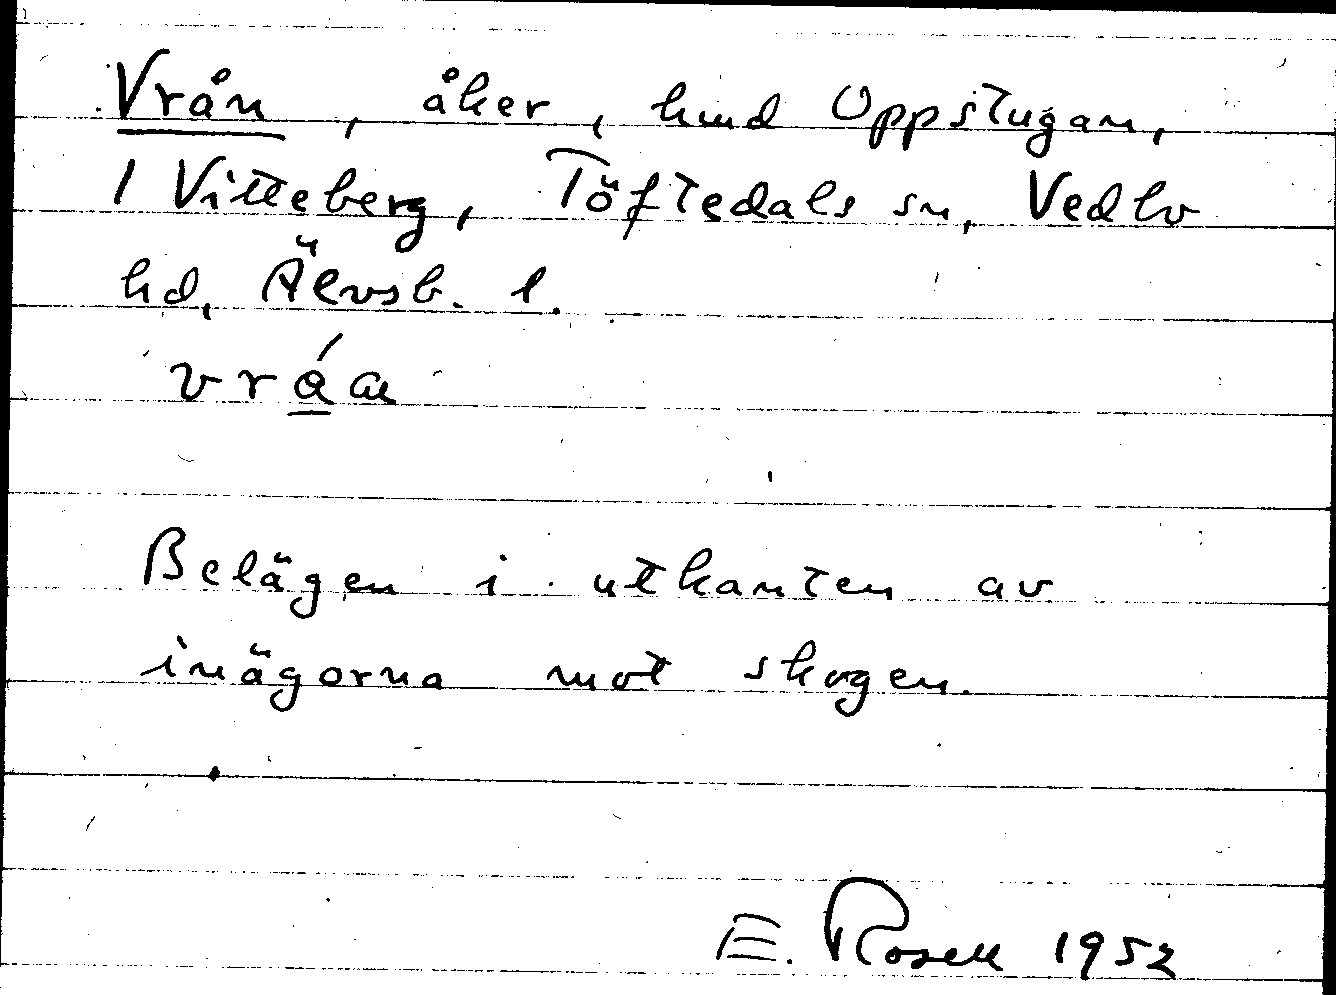 Vrån, åker, hmd Uppstugan,
1 Vitteberg, Töftedals sn, Vedbo
hd, Älvsb. l.
Belägen i utkanten av
inägorna mot skogen.
E. Rosell 1952